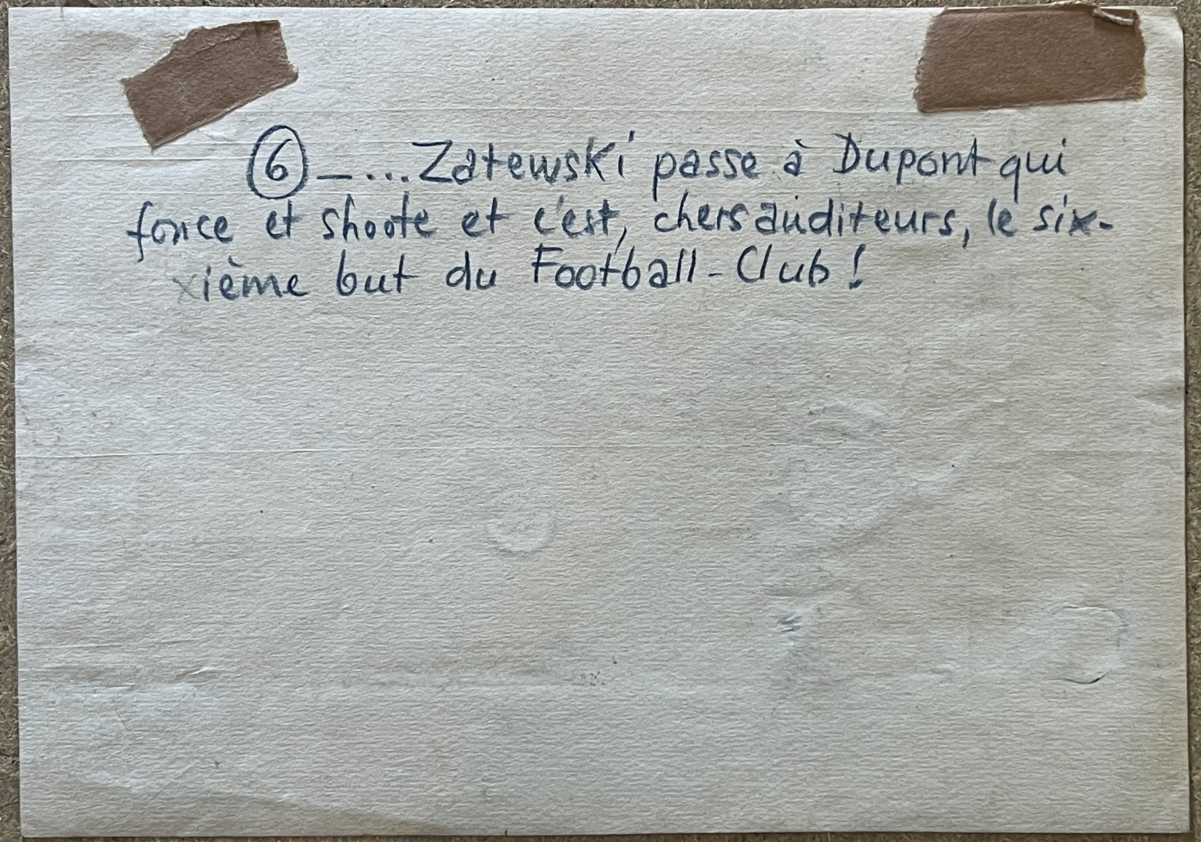 ⑥ – ... Zatewski passe à Dupont qui
fonce et shoote et c'est, chers auditeurs, le six-
xième but du Football-Club !